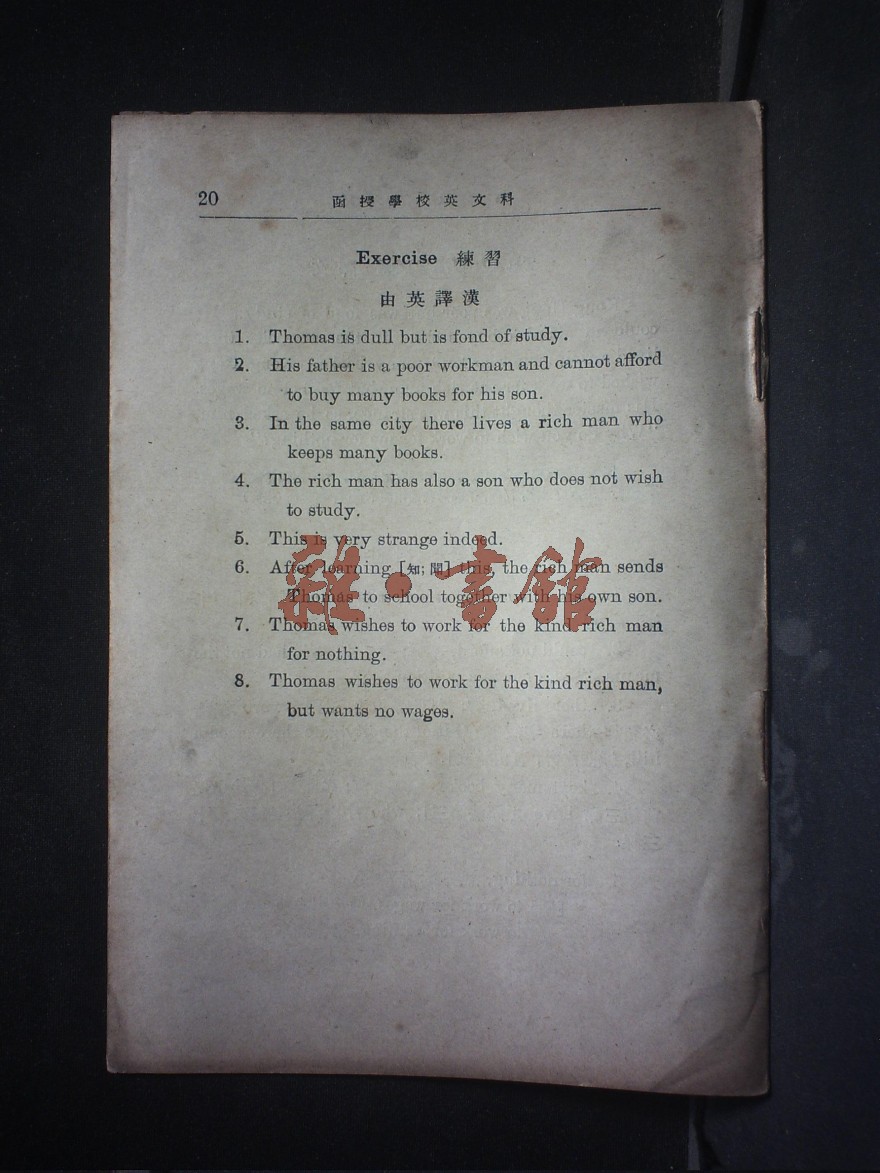 20 函授學校英文科
Exercise 練習
由英譯漢
1. Thomas is dull but is fond of study.
2. His father is a poor workman and cannot afford
to buy many books for his son.
3. In the same city there lives a rich man who
keeps many books.
4. The rich man has also a son who does not wish
to study.
5. This is very strange indeed.
6. After learning [知; 聞] this, the rich man sends
Thomas to school together with his own son.
7. Thomas wishes to work for the kind rich man
for nothing.
8. Thomas wishes to work for the kind rich man,
but wants no wages.
雜·書館